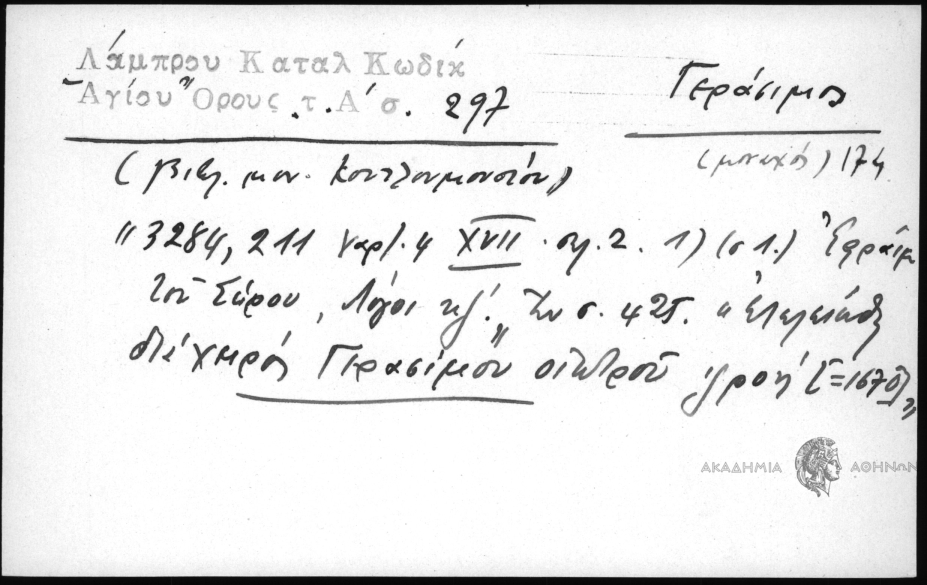 Λάμπρου Καταλ Κωδίκ
Ἁγίου Ὄρους τ. Α΄ σ. 297
Γεράσιμος
(μοναχός) 174
(Βιβλ. μον. Κουτλουμουσίου)
"3284, 211 Χαρτ. 4 XVII. σελ. 2. 1) (σ 1.) Ἐφραὶμ
τοῦ Σύρου, Λόγοι Ἐν σ. 425. "Ἐτελειώθη
διὰ χειρός Γερασίμου οἰκτροῦ [=1670]"
ΑΚΑΔΗΜΙΑ ΑΘΗΝΩΝ